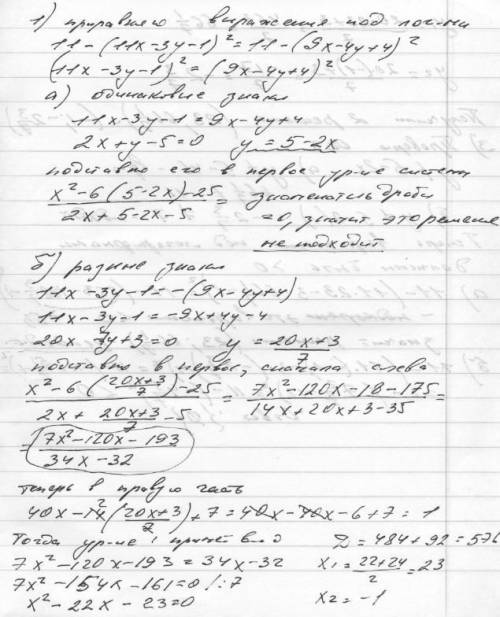 1) приравняю выражения под лог-ми
11-(11x-3y-1)²=11-(9x-4y+4)²
(11x-3y-1)²=(9x-4y+4)²
а) одинаковые знаки
11x-3y-1=9x-4y+4
2x+y-5=0 y=5-2x
подставлю его в первое ур-ие системы
x²-6(5-2x)-25/2x+5-2x-5 = знаменатель дроби
=0, значит это решение
не подходит
б) разные знаки
11x-3y-1=-(9x-4y+4)
11x-3y-1=-9x+4y-4
20x-7y+3=0 y=20x+3/7
подставлю в первое, сначала слева
x²-6(20x+3/7)-25/2x+20x+3/7-5 = 7x²-120x-18-175/14x+20x+3-35 =
= 7x²-120x-193/34x-32
теперь в правую часть
40x-14²(20x+3/7)+7=40x-40x-6+7=1
Тогда ур-ие 1 примет вид D=484+92=576
7x²-120x-193=34x-32 x₁=22+24/2=23
7x²-154x-161=0 /:7
x²-22x-23=0 x₂=-1